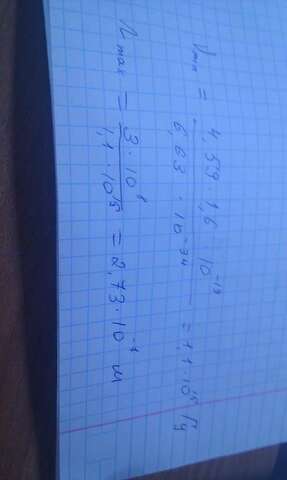 ν min = 4,59 · 1,6 · 10^-19 / 6,63 · 10^-34 = 1,1 · 10^15 Гц
λ max = 3 · 10^8 / 1,1 · 10^15 = 2,73 · 10^-7 м